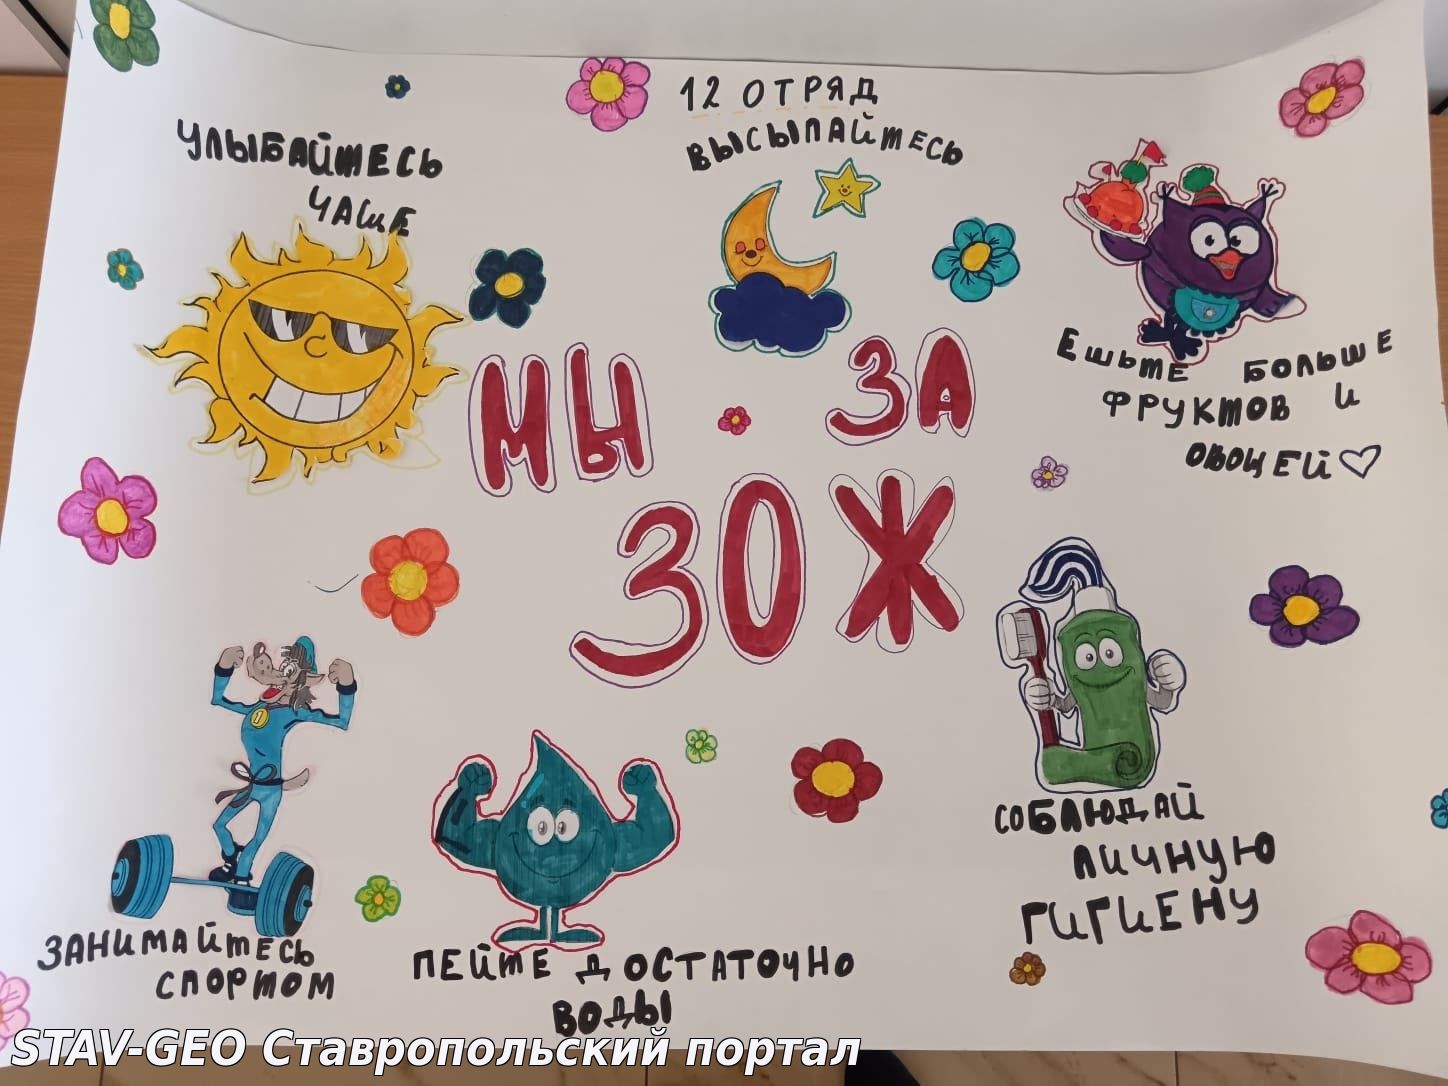 12 ОТРЯД
УЛЫБАЙТЕСЬ
ЧАЩЕ
ВЫСЫПАЙТЕСЬ
ЕШЬТЕ БОЛЬШЕ
ФРУКТОВ И
ОВОЩЕЙ♡
МЫ ЗА
ЗОЖ
СОБЛЮДАЙ
ЛИЧНУЮ
ГИГИЕНУ
ЗАНИМАЙТЕСЬ
СПОРТОМ
ПЕЙТЕ ДОСТАТОЧНО
ВОДЫ
STAV-GEO Ставропольский портал